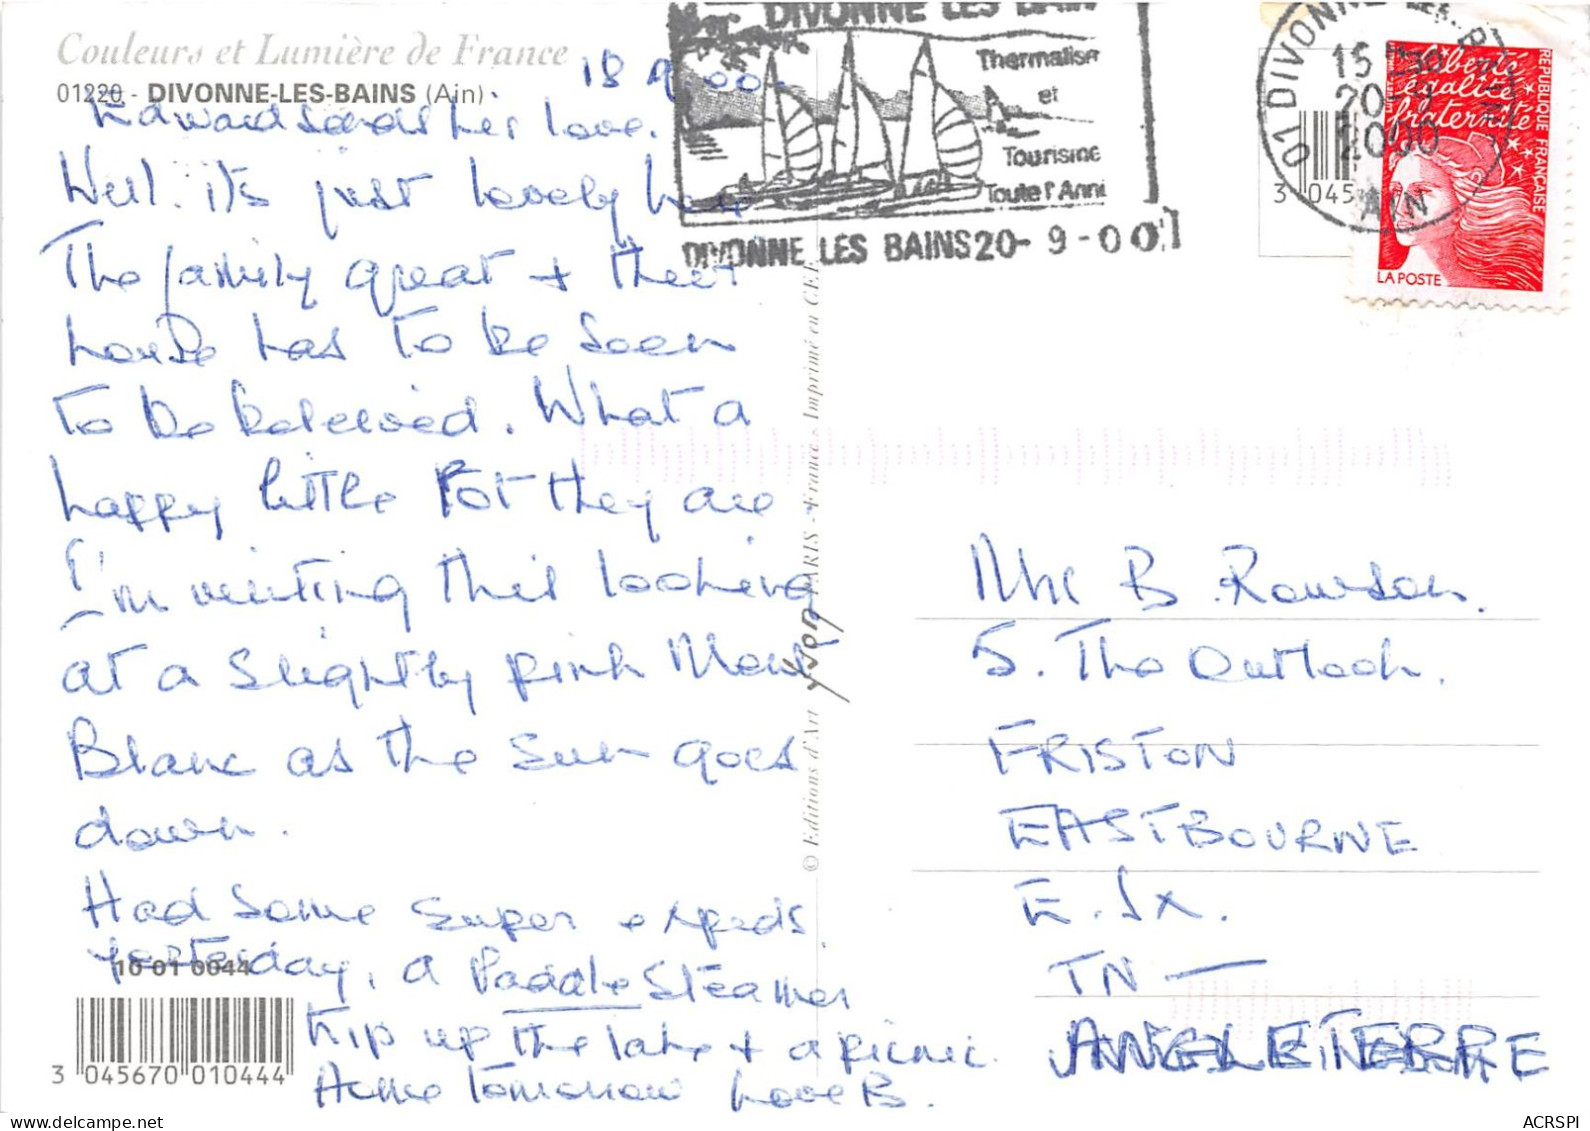 Couleurs et Lumière de France
01220 - DIVONNE-LES-BAINS (Ain)
18 9 00.
Edward sends his love.
Well. it's just lovely here
The family great + their
house has to be seen
to be beleived. What a
happy little Pot they are
I'm writing this looking
at a slightly pink Mont
Blanc as the sun goes
down.
Had some super expeds.
yesterday, a Paddle Steamer
trip up the lake + a picnic.
Home tomorrow Love B.
10 01 0044
3 045670 010444
© Editions d'Art yvon PARIS - France - Imprimé en C.E.E.
DIVONNE LES BAIN
Thermalisme
et
Tourisme
Toute l'Anné
DIVONNE LES BAINS 20- 9 -00
01 DIVONNE LES BAINS
15 H30
20-9
2000
AIN
3 045
liberté
égalité
fraternité
RÉPUBLIQUE FRANÇAISE
LA POSTE
B. Rowson.
5. The Outlook.
FRISTON
EASTBOURNE
E. Sx.
TN —
ANGLETERRE
ACRSPI